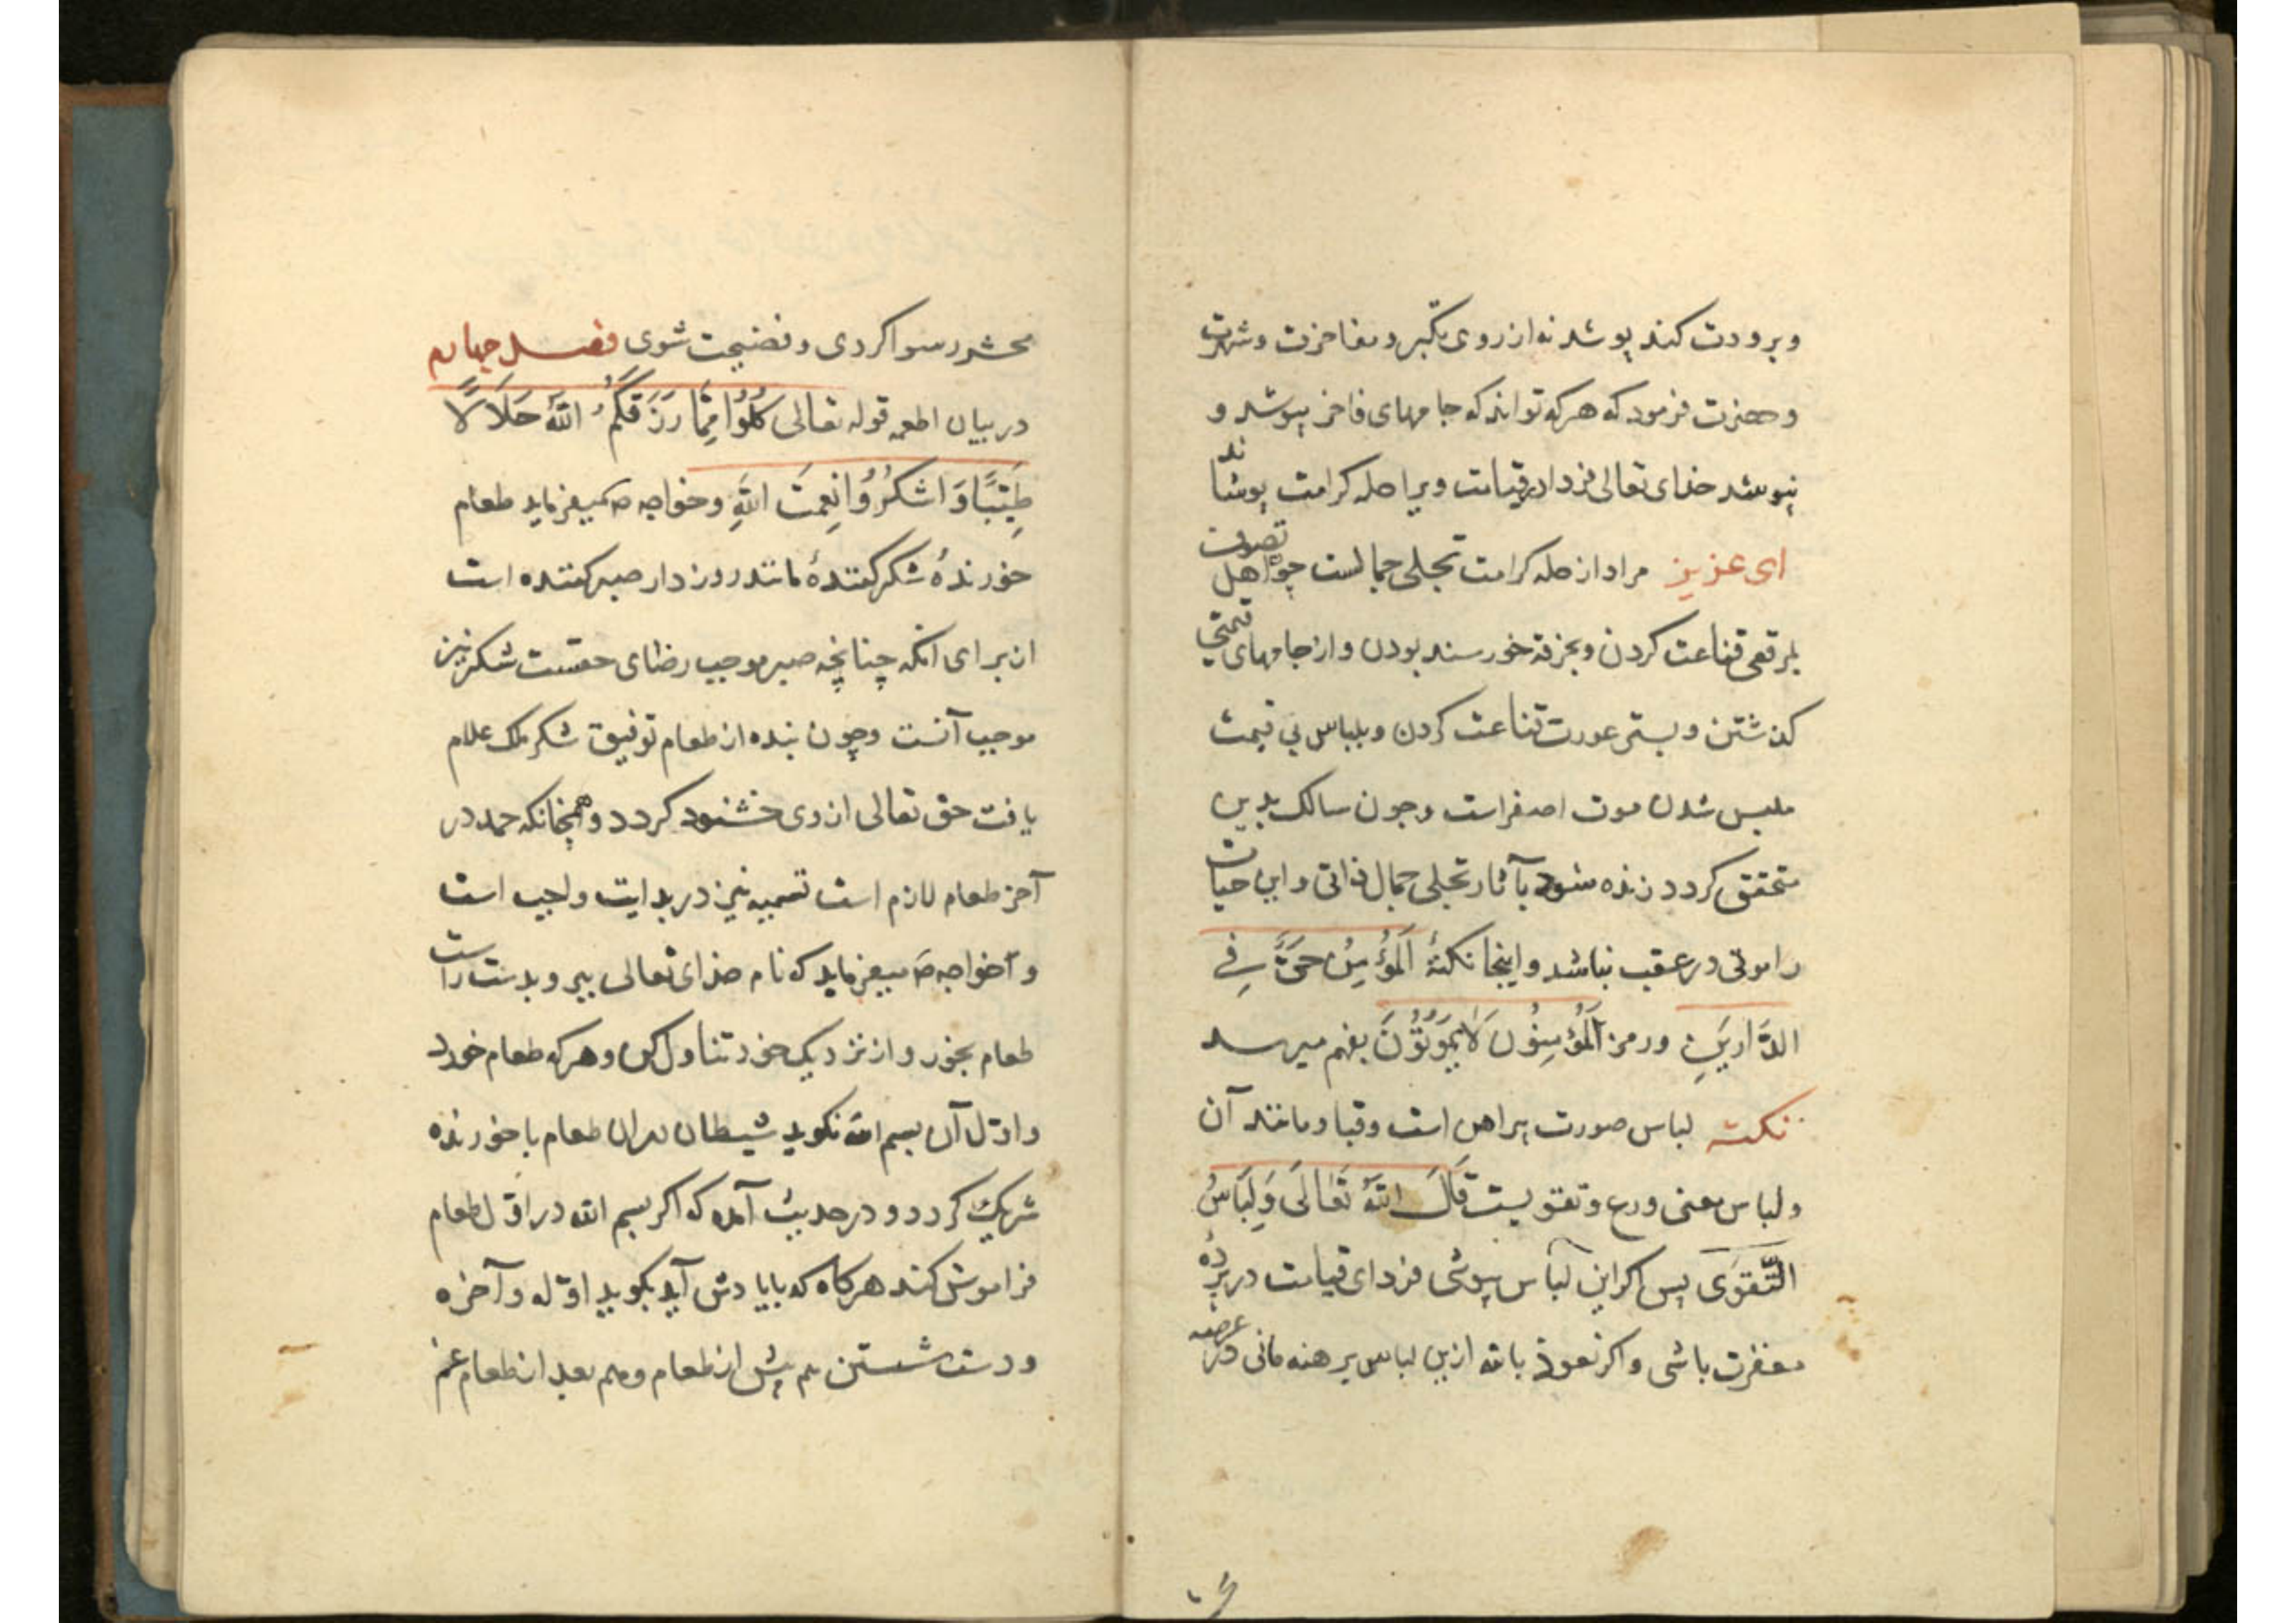 و برودت کند پوشد نه از روی تکبر و مفاخرت و شهرت
و حضرت فرمود که هر که تواند که جامهای فاخر بپوشد و
نپوشد خدای تعالی فردا در قیامت ویرا حله کرامت پوشاند
ای عزیز مراد از حله کرامت تجلی جمالست چو اهل تصوف
بمرقعی قناعت کردن و بخرقه خورسند بودن و از جامهای قیمتی
کذشتن و بستر عورت قناعت کردن و بلباس بی قیمت
ملبس شدن موت اصفراست و چون سالک بدین
متحقق کردد زنده شود بآثار تجلی جمال ذاتی و این حیات
را موتی در عقب نباشد و اینجا نکتهٔ اَلمُؤمِنُ حَیٌّ فِی
الدَّارَینِ و رمز اَلمُؤمِنُونَ لَایَمُوتُونَ بفهم میرسد
نکته لباس صورت پیراهن است و قبا و مانند آن
و لباس معنی ورع و تقویست قَالَ اللّٰهُ تَعَالَی وَلِبَاسُ
التَّقوَی پس اکر این لباس پوشی فردای قیامت در پردهٔ
مغفرت باشی و اکر نعوذ بالله ازین لباس برهنه مانی در عرصه
محشر رسوا کردی و فضیحت شوی فصل چهارم
در بیان اطعمه قوله تعالی کُلُوا مِمَّا رَزَقَکُمُ اللّٰهُ حَلَالًا
طَیِّبًا وَاشکُرُوا نِعمَتَ اللّٰهِ و خواجه ص میفرماید طعام
خورندهٔ شکر کنندهٔ مانند روزدار صبر کننده است
از برای آنکه چنانچه صبر موجب رضای حقست شکر نیز
موجب آنست و چون بنده از طعام توفیق شکر ملک علام
یافت حق تعالی از وی خشنود کردد و همچنانکه حمد در
آخر طعام لازم است تسمیه نیز در بدایت واجب است
و آخواجه ص میفرماید که نام خدای تعالی ببر و بدست راست
طعام بخور و از نزدیک خود تناول کن و هر که طعام خورد
و اول آن بسم الله نکوید شیطان در آن طعام با خورنده
شریک کردد و در حدیث آمده که اکر بسم الله در اول طعام
فراموش کند هرکاه که بایادش آید بکوید اوله و آخره
و دست شستن هم پیش از طعام و هم بعد از طعام غم